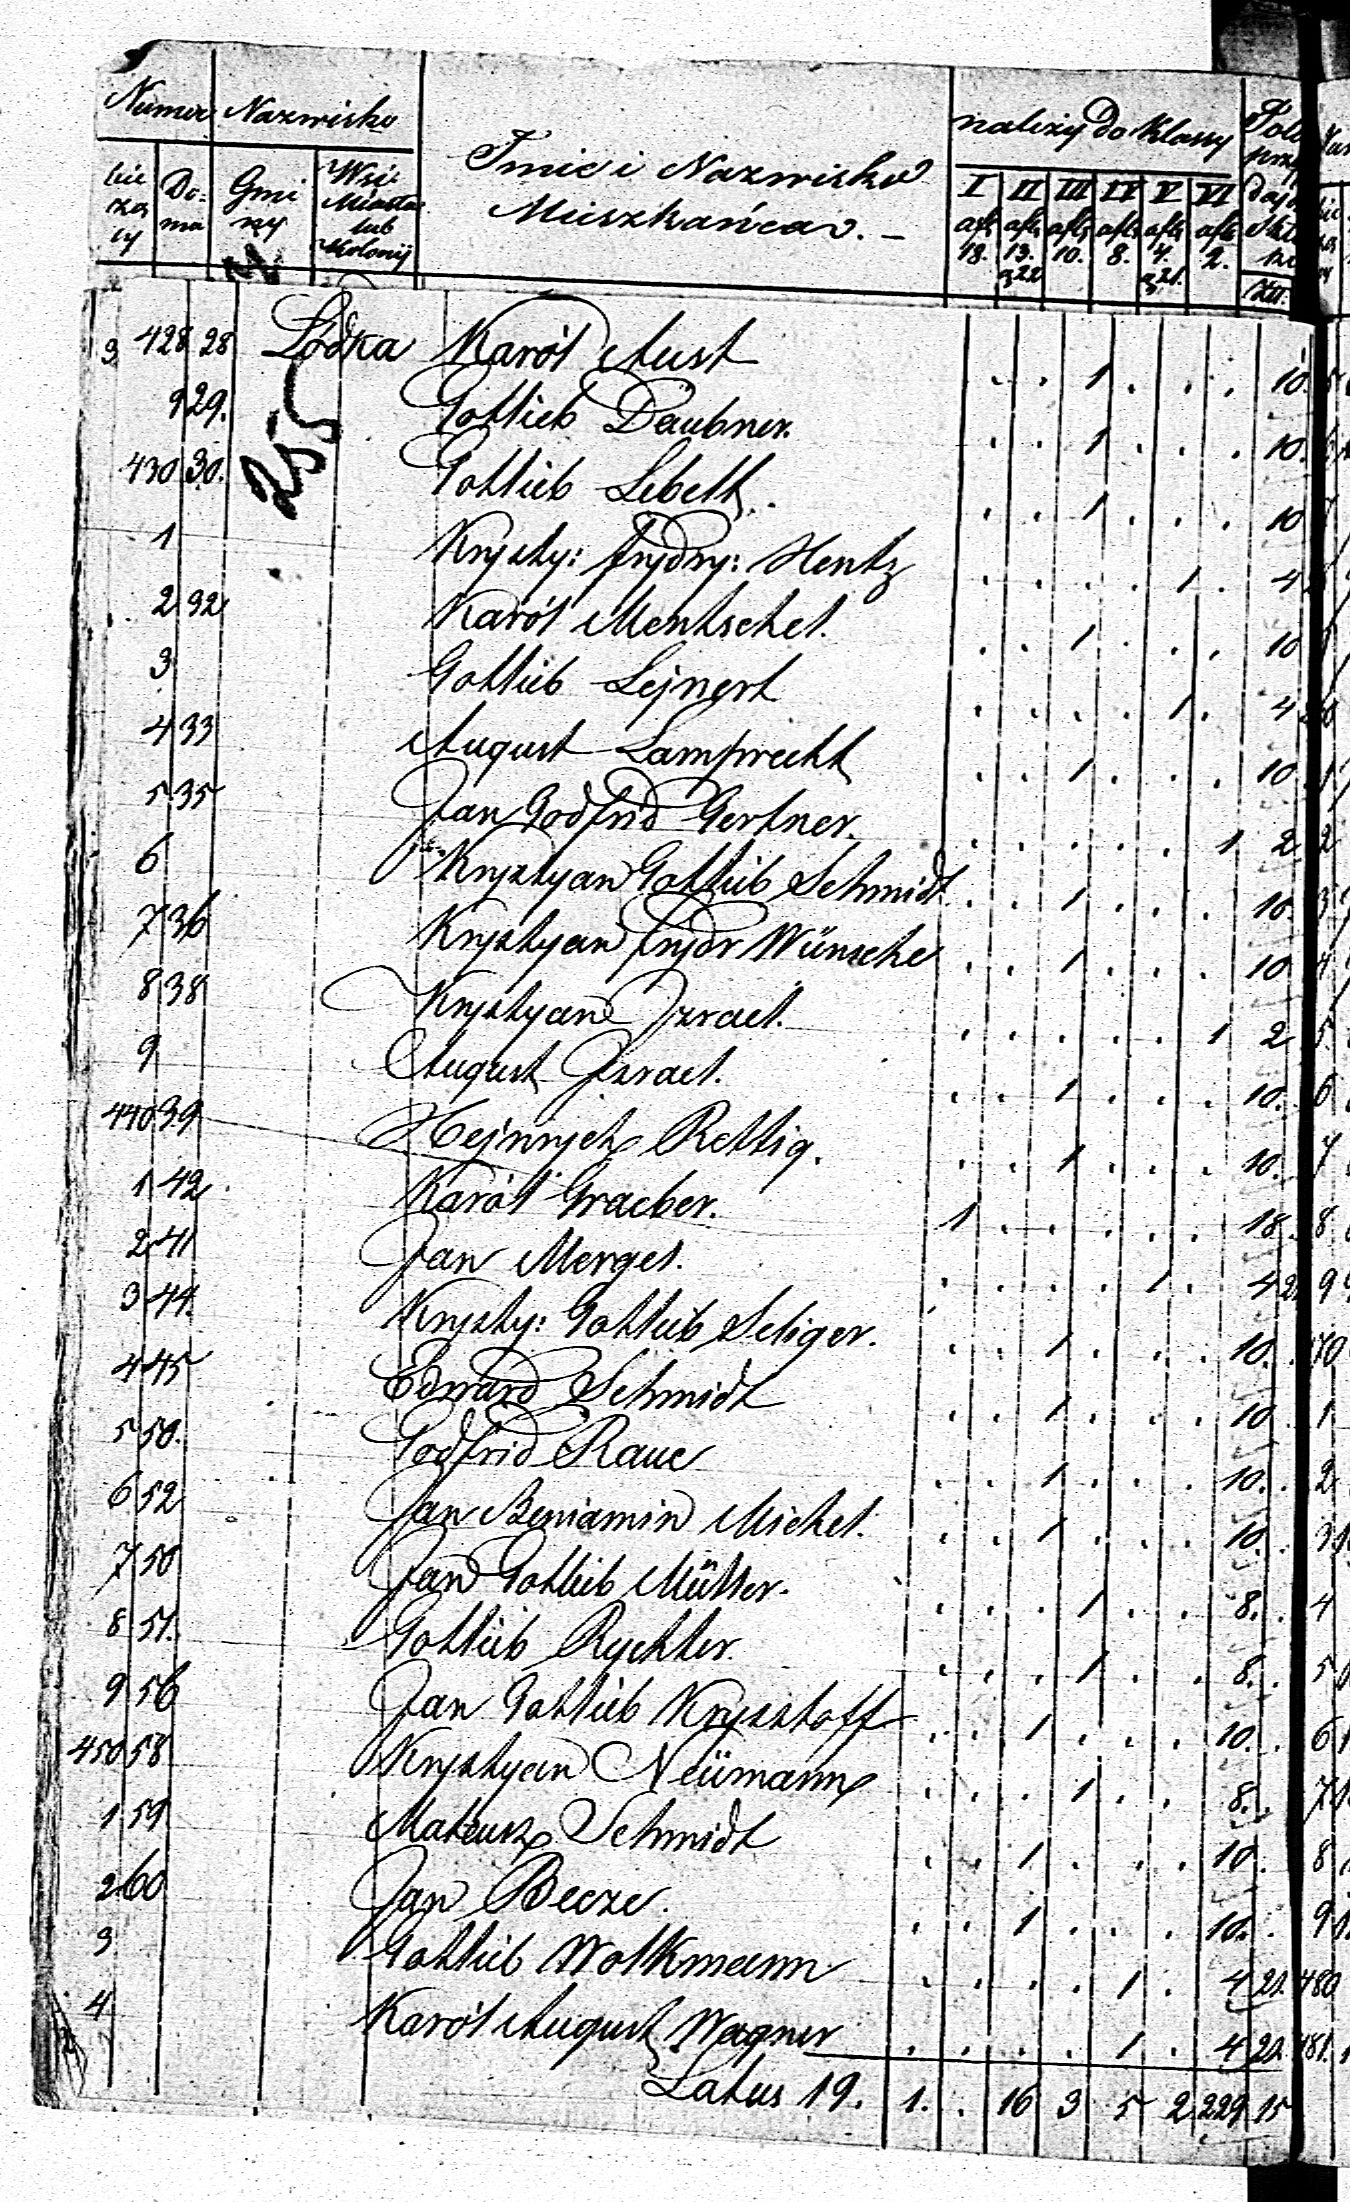 Numer Nazwisko Imie i Nazwisko Mieszkańca. – należy do Klassy
bie żą cy Do- mu Gmi ny Wsi Miasta lub Kolonij I II III IV V VI
18. 13. g 22 10. 8. 4. g 21. 2.
428 28 Lódka Karól Aust . . 1 . . . 10.
9 29. Gottlieb Daubner. . . 1 . . . 10.
255
430 30. Gottlieb Lebelt . . 1 . . . 10
1 Krysty: Frydry: Hentz . . . . 1 . 4
2 32 Karól Mentschel. . . 1 . . . 10
3 Gottlieb Lejnert . . . . 1 . 4
4 33 August Lamprecht . . 1 . . . 10
5 35 Jan Godfrid Gertner. . . . . . 1 2
6 Krystyan Gottlieb Schmidt . . 1 . . . 10.
7 36 Krystyan Frydr Wünsche . . 1 . . . 10
8 38 Krystyan Izrael. . . . . . 1 2
9 August Izrael. . . 1 . . . 10.
440 39 Hejnrych Rettig. . . 1 . . . 10.
1 42 Karól Graeber. 1 . . . . . 18
2 41 Jan Mergel. . . . . 1 . 4 21
3 44. Krysty: Gottlieb Seliger. . . 1 . . . 10.
4 45 Edward Schmidt . . 1 . . . 10
5 50. Godfrid Raue . . 1 . . . 10.
6 52 Jan Beniamin Michel. . . 1 . . . 10.
7 50 Jan Gottlieb Müller. . . . 1 . . 8.
8 51. Gottlieb Rychter. . . . 1 . . 8.
9 56 Jan Gottlieb Krysstoff . . 1 . . . 10.
450 58 Krystyan Neümann . . . 1 . . 8.
1 59 Mateusz Schmidt . . 1 . . . 10.
2 60 Jan Beeze. . . 1 . . . 10.
3 Gottlieb Wolkmann . . . . 1 . 4 21.
4 Karól August Wagner . . . . 1 . 4 21.
Latus 19. 1. . 16 3 5 2 229 15